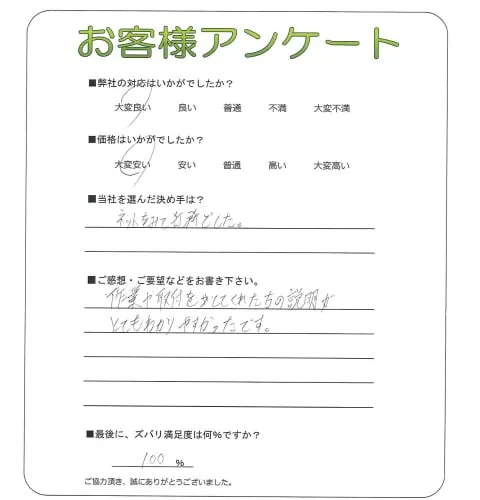 お客様アンケート
■弊社の対応はいかがでしたか？
大変良い 良い 普通 不満 大変不満
■価格はいかがでしたか？
大変安い 安い 普通 高い 大変高い
■当社を選んだ決め手は？
ネットをみて
でした。
■ご感想・ご要望などをお書き下さい。
作業や取付をしてくれた方の説明が
とてもわかりやすかったです。
■最後に、ズバリ満足度は何%ですか？
100 %
ご協力頂き、誠にありがとうございました。